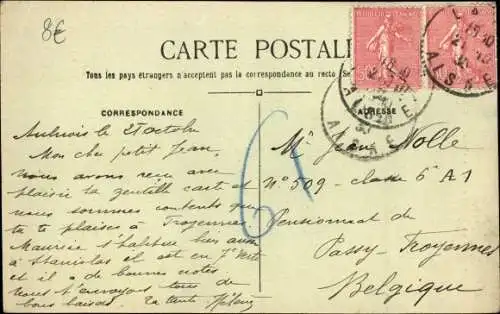 8€
CARTE POSTALE
Tous les pays étrangers n'acceptent pas la correspondance au recto
CORRESPONDANCE
ADRESSE
25 Octobre
Mon cher petit Jean,
nous avons reçu avec
plaisir ta gentille carte et
nous sommes contents que
tu te plaises à Froyennes
Maurice s'habitue bien aussi
à Stanislas et est en 7e
et il a de bonnes notes
Nous t'envoyons tous de
bons baisers. ta tante Hélène
Mr Jean Nolle
No 509 - classe 6e A1
Pensionnat de
Passy-Froyennes
Belgique
AISNE
AISNE